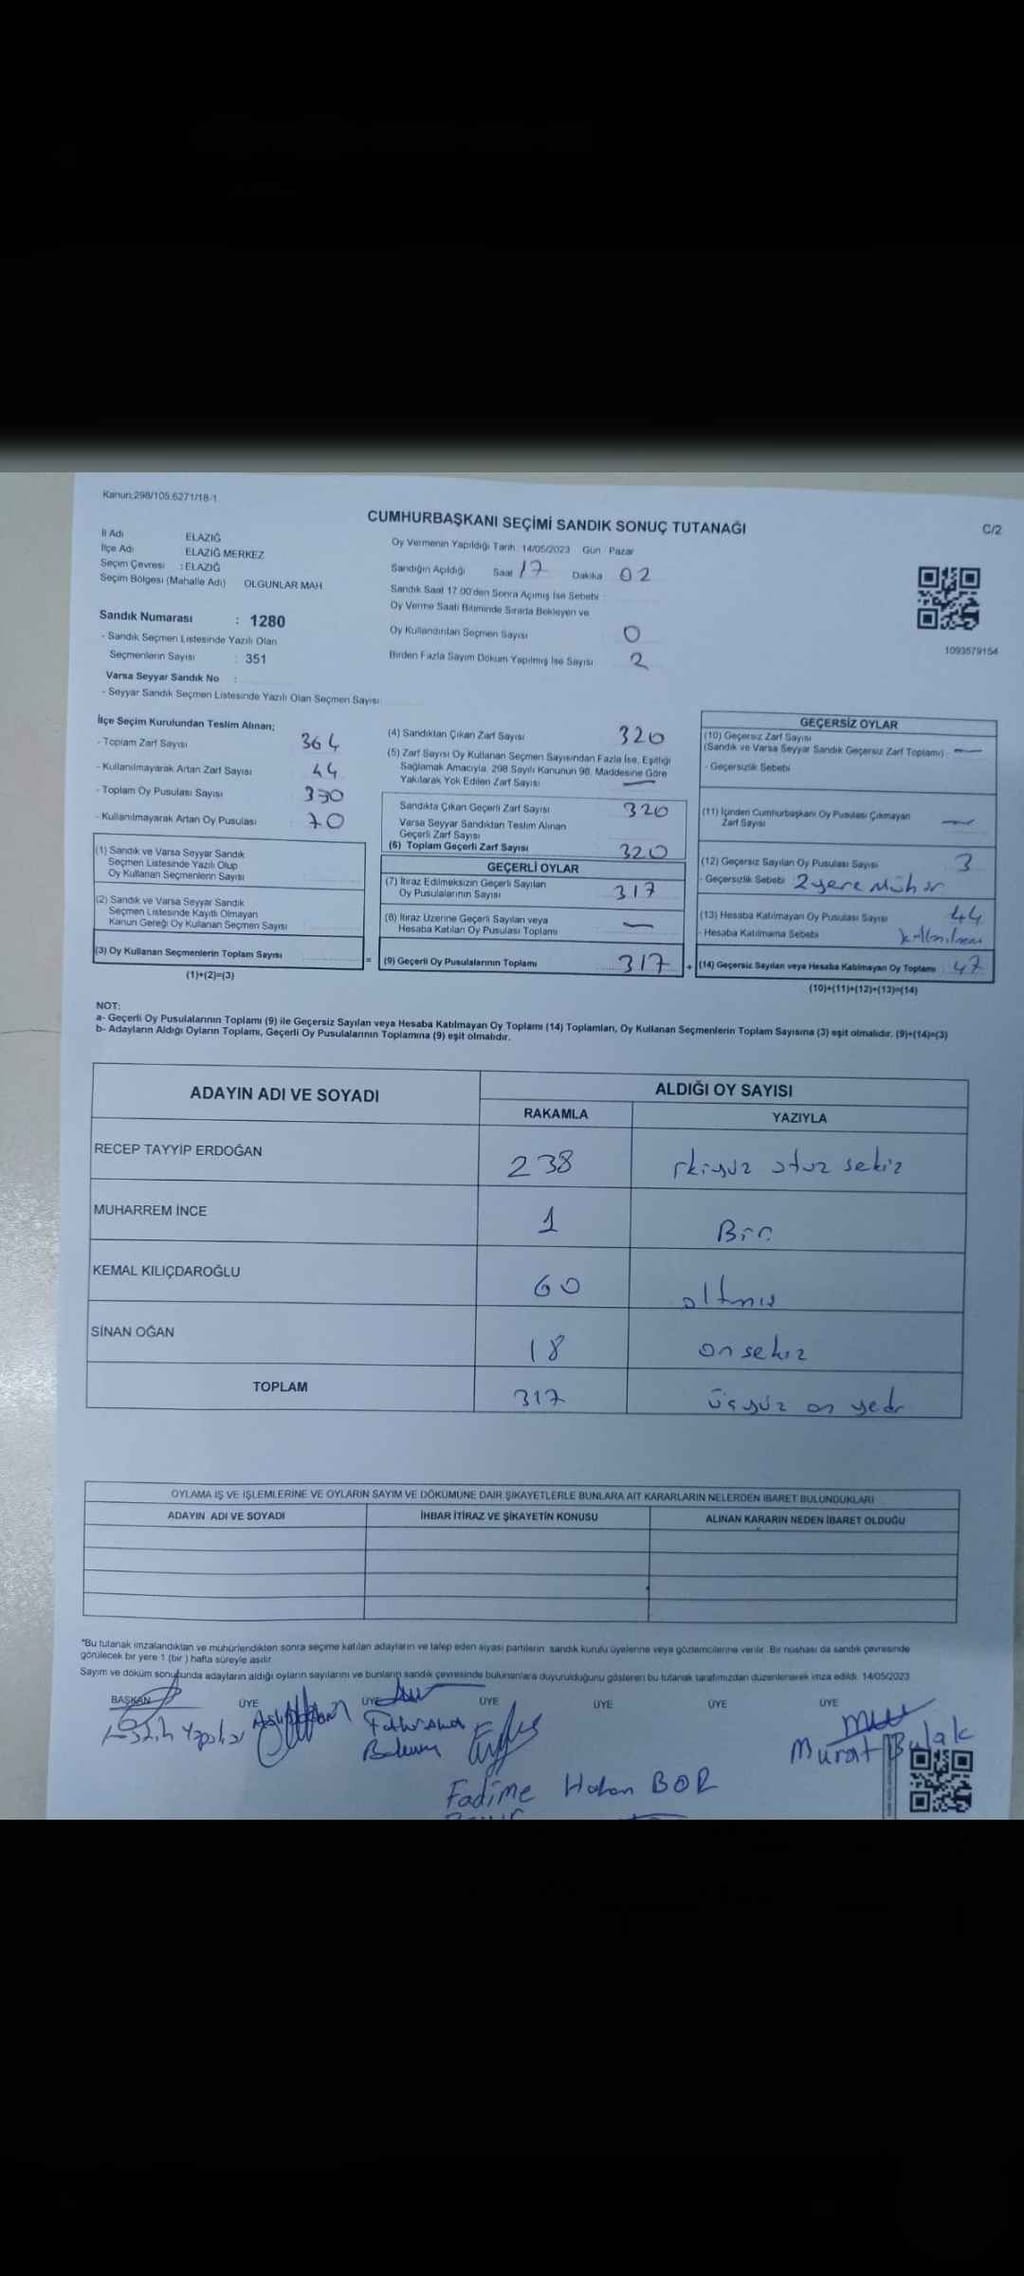 Kanun:298/105.6271/18-1
CUMHURBAŞKANI SEÇİMİ SANDIK SONUÇ TUTANAĞI
C/2
İl Adı ELAZIĞ
İlçe Adı ELAZIĞ MERKEZ
Seçim Çevresi : ELAZIĞ
Seçim Bölgesi (Mahalle Adı) OLGUNLAR MAH
Oy Vermenin Yapıldığı Tarih 14/05/2023 Gün Pazar
Sandığın Açıldığı Saat 17 Dakika 02
Sandık Saat 17.00'den Sonra Açımış İse Sebebi
Oy Verme Saati Bitiminde Sırada Bekleyen ve
Oy Kullandırılan Seçmen Sayısı 0
Birden Fazla Sayım Döküm Yapılmış İse Sayısı 2
1093579154
Sandık Numarası : 1280
- Sandık Seçmen Listesinde Yazılı Olan
Seçmenlerin Sayısı : 351
Varsa Seyyar Sandık No :
- Seyyar Sandık Seçmen Listesinde Yazılı Olan Seçmen Sayısı
İlçe Seçim Kurulundan Teslim Alınan;
- Toplam Zarf Sayısı 364
- Kullanılmayarak Artan Zarf Sayısı 44
- Toplam Oy Pusulası Sayısı 390
- Kullanılmayarak Artan Oy Pusulası 70
(1) Sandık ve Varsa Seyyar Sandık
Seçmen Listesinde Yazılı Olup
Oy Kullanan Seçmenlerin Sayısı
(2) Sandık ve Varsa Seyyar Sandık
Seçmen Listesinde Kayıtlı Olmayan
Kanun Gereği Oy Kullanan Seçmen Sayısı
(3) Oy Kullanan Seçmenlerin Toplam Sayısı
(1)+(2)=(3)
(4) Sandıktan Çıkan Zarf Sayısı 320
(5) Zarf Sayısı Oy Kullanan Seçmen Sayısından Fazla İse, Eşitliği
Sağlamak Amacıyla, 298 Sayılı Kanunun 98. Maddesine Göre
Yakılarak Yok Edilen Zarf Sayısı —
Sandıkta Çıkan Geçerli Zarf Sayısı 320
Varsa Seyyar Sandıktan Teslim Alınan
Geçerli Zarf Sayısı
(6) Toplam Geçerli Zarf Sayısı 320
GEÇERLİ OYLAR
(7) İtiraz Edilmeksizin Geçerli Sayılan
Oy Pusulalarının Sayısı 317
(8) İtiraz Üzerine Geçerli Sayılan veya
Hesaba Katılan Oy Pusulası Toplamı —
= (9) Geçerli Oy Pusulalarının Toplamı 317 +
GEÇERSİZ OYLAR
(10) Geçersiz Zarf Sayısı
(Sandık ve Varsa Seyyar Sandık Geçersiz Zarf Toplamı) —
- Geçersizlik Sebebi
(11) İçinden Cumhurbaşkanı Oy Pusulası Çıkmayan
Zarf Sayısı —
(12) Geçersiz Sayılan Oy Pusulası Sayısı 3
- Geçersizlik Sebebi 2 yere Mühür
(13) Hesaba Katılmayan Oy Pusulası Sayısı 44
- Hesaba Katılmama Sebebi
(14) Geçersiz Sayılan veya Hesaba Katılmayan Oy Toplamı 47
(10)+(11)+(12)+(13)=(14)
NOT:
a- Geçerli Oy Pusulalarının Toplamı (9) ile Geçersiz Sayılan veya Hesaba Katılmayan Oy Toplamı (14) Toplamları, Oy Kullanan Seçmenlerin Toplam Sayısına (3) eşit olmalıdır. (9)+(14)=(3)
b- Adayların Aldığı Oyların Toplamı, Geçerli Oy Pusulalarının Toplamına (9) eşit olmalıdır.
ADAYIN ADI VE SOYADI ALDIĞI OY SAYISI
RAKAMLA YAZIYLA
RECEP TAYYİP ERDOĞAN 238 ikiyüz otuz sekiz
MUHARREM İNCE 1 Bir
KEMAL KILIÇDAROĞLU 60 altmış
SİNAN OĞAN 18 on sekiz
TOPLAM 317 üçyüz on yedi
OYLAMA İŞ VE İŞLEMLERİNE VE OYLARIN SAYIM VE DÖKÜMÜNE DAİR ŞİKAYETLERLE BUNLARA AİT KARARLARIN NELERDEN İBARET BULUNDUKLARI
ADAYIN ADI VE SOYADI İHBAR İTİRAZ VE ŞİKAYETİN KONUSU ALINAN KARARIN NEDEN İBARET OLDUĞU
*Bu tutanak imzalandıktan ve mühürlendikten sonra seçime katılan adayların ve talep eden siyasi partilerin sandık kurulu üyelerine veya gözlemcilerine verilir. Bir nüshası da sandık çevresinde
görülecek bir yere 1 (bir) hafta süreyle asılır.
Sayım ve döküm sonucunda adayların aldığı oyların sayılarını ve bunların sandık çevresinde bulunanlara duyurulduğunu gösteren bu tutanak tarafımızdan düzenlenerek imza edildi. 14/05/2023
BAŞKAN ÜYE ÜYE ÜYE ÜYE ÜYE ÜYE
Murat Bulak
Fadime Hakan BOR